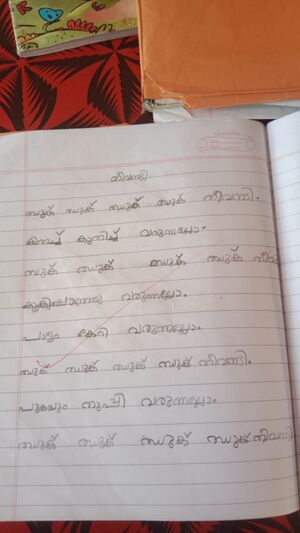 തീവണ്ടി
ഝുക് ഝുക് ഝുക് ഝുക് തീവണ്ടി.
കിതച്ച് കുതിച്ച് വരുന്നല്ലോം.
ഝുക് ഝുക് ഝുക് ഝുക് തീവ
കൂകിപ്പാഞ്ഞു വരുന്നല്ലോം.
പാട്ടും കേറി വരുന്നല്ലോം
ഝുക് ഝുക് ഝുക് ഝുക് തീവണ്ടി.
പുകയും തുപ്പി വരുന്നല്ലോം
ഝുക് ഝുക് ഝുക് ഝുക് തീവണ്ടി